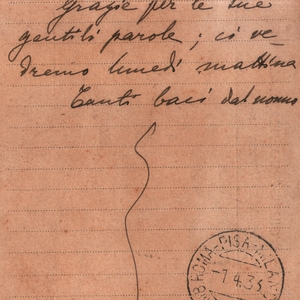 Grazie per le tue
gentili parole; ci ve-
dremo lunedì mattina
Tanti baci dal nonno
ROMA-PISA-MILANO
-7.4.33